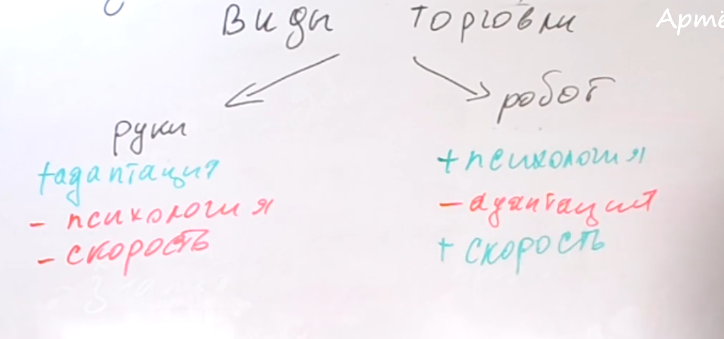 Виды торговли
Артё
руки
+адаптация
- психология
- скорость
робот
+психология
-адаптация
+ скорость